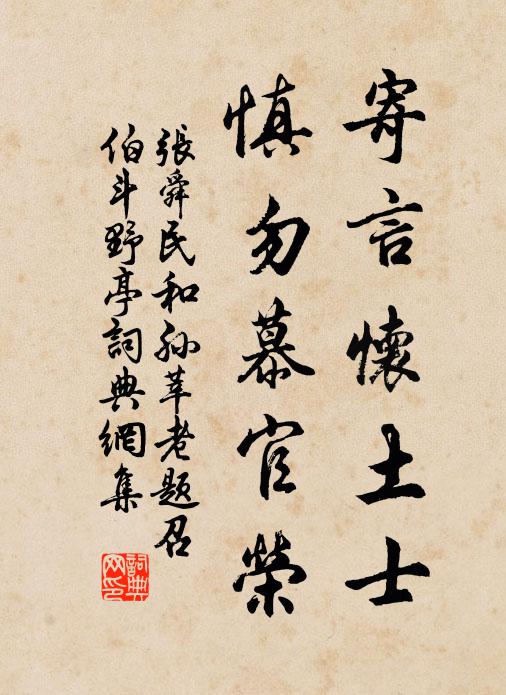 寄言懷土士
慎勿慕官榮
張舜民和孫莘老題召
伯斗野亭詞典網集
詞典
网印